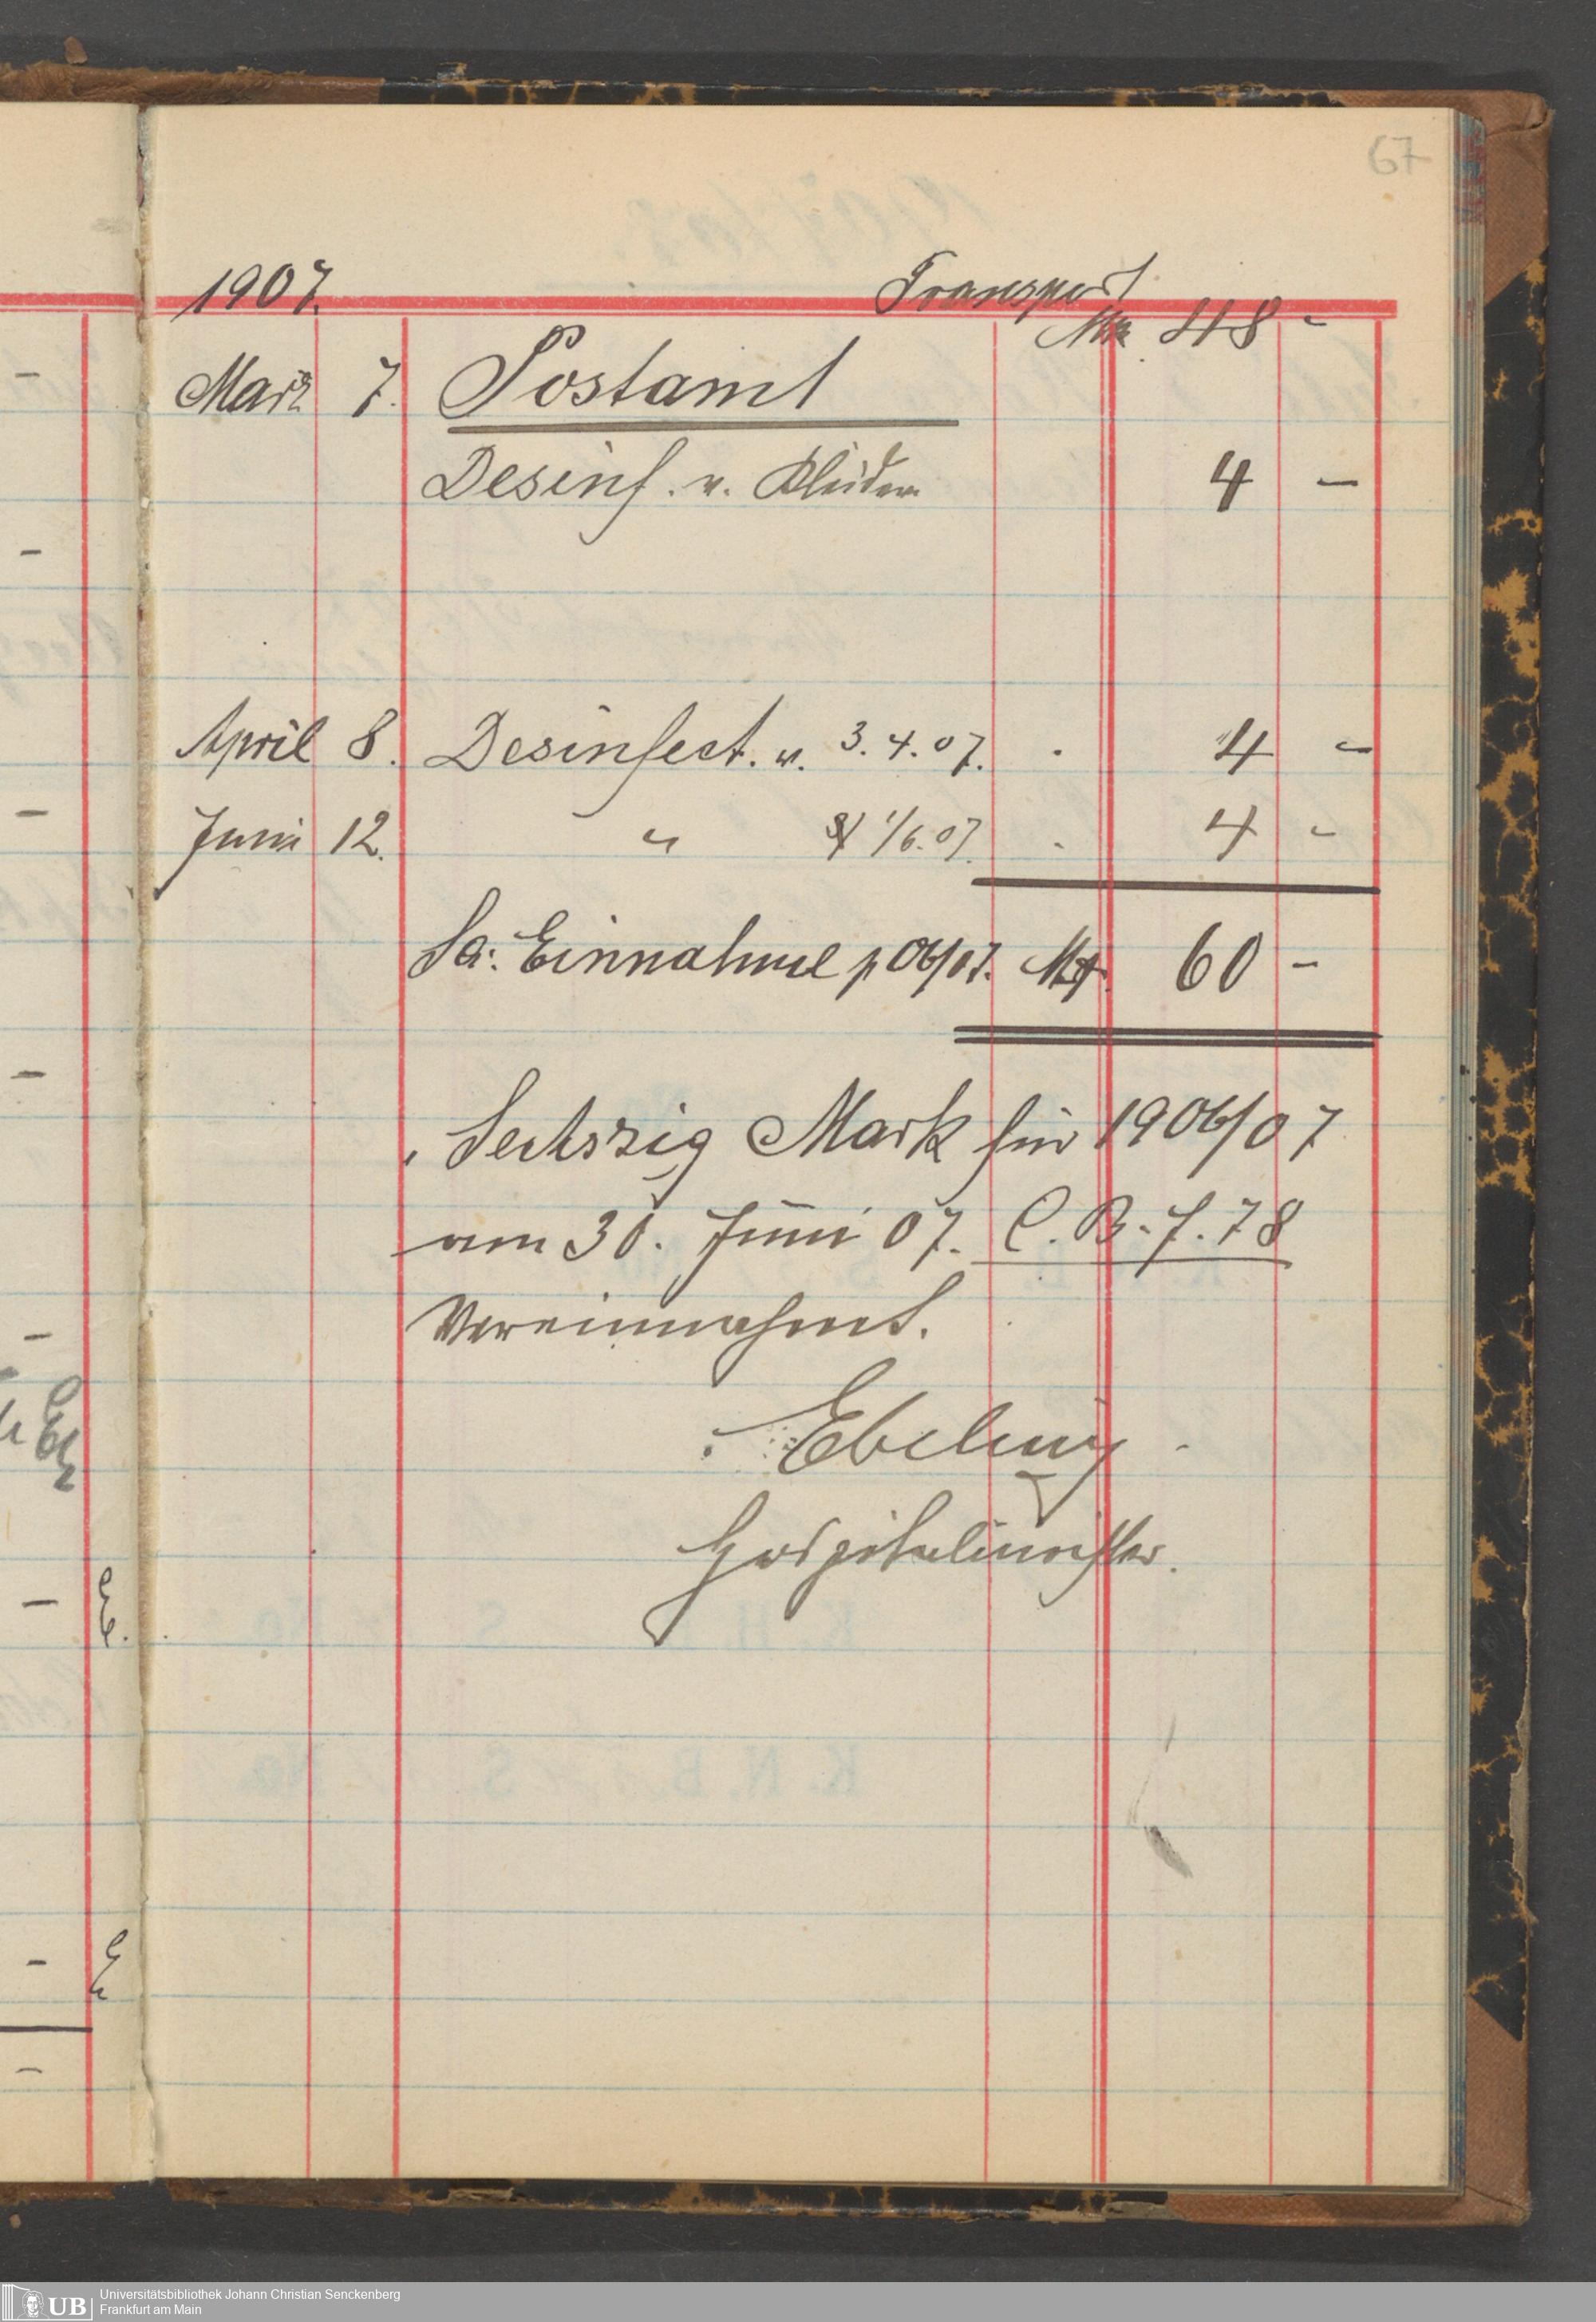 67
1907. Transport
Mk 48 -
März 7. Postamt
Desinf. v. Kleidern 4 -
April 8. Desinfect. v. 3.4.07. 4 -
Juni 12. " 1/6.07. 4 -
Sa: Einnahme p 06/07. Mk. 60 -
Sechszig Mark für 1906/07
am 30. Juni 07. C. B. f. 78
Vereinnahmt.
Ebeling
Hospitalmeister.
UB Universitätsbibliothek Johann Christian Senckenberg
Frankfurt am Main